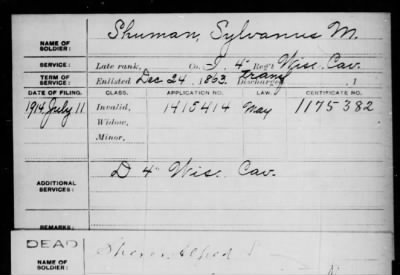 Shuman, Sylvanus M.
NAME OF SOLDIER:
SERVICE: Late rank, Co. I, 4" Reg't Wisc. Cav.
TERM OF SERVICE: Enlisted Dec 24, 1863. Discharged transf , 1
DATE OF FILING. CLASS. APPLICATION NO. LAW. CERTIFICATE NO.
1914 July 11 Invalid, 1415414 May 1175382
Widow,
Minor,
D 4" Wisc. Cav.
ADDITIONAL SERVICES:
REMARKS:
DEAD
NAME OF SOLDIER: Alfred